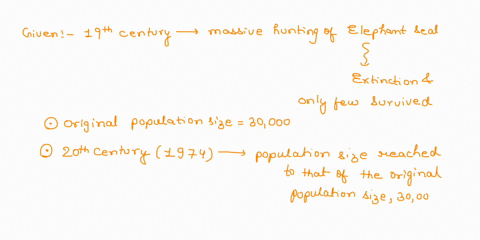 Given:- 19th century → massive hunting of Elephant seal
Extinction &
only few survived
⊙ Original population size = 30,000
⊙ 20th century (1974) → population size reached
to that of the original
population size, 30,00